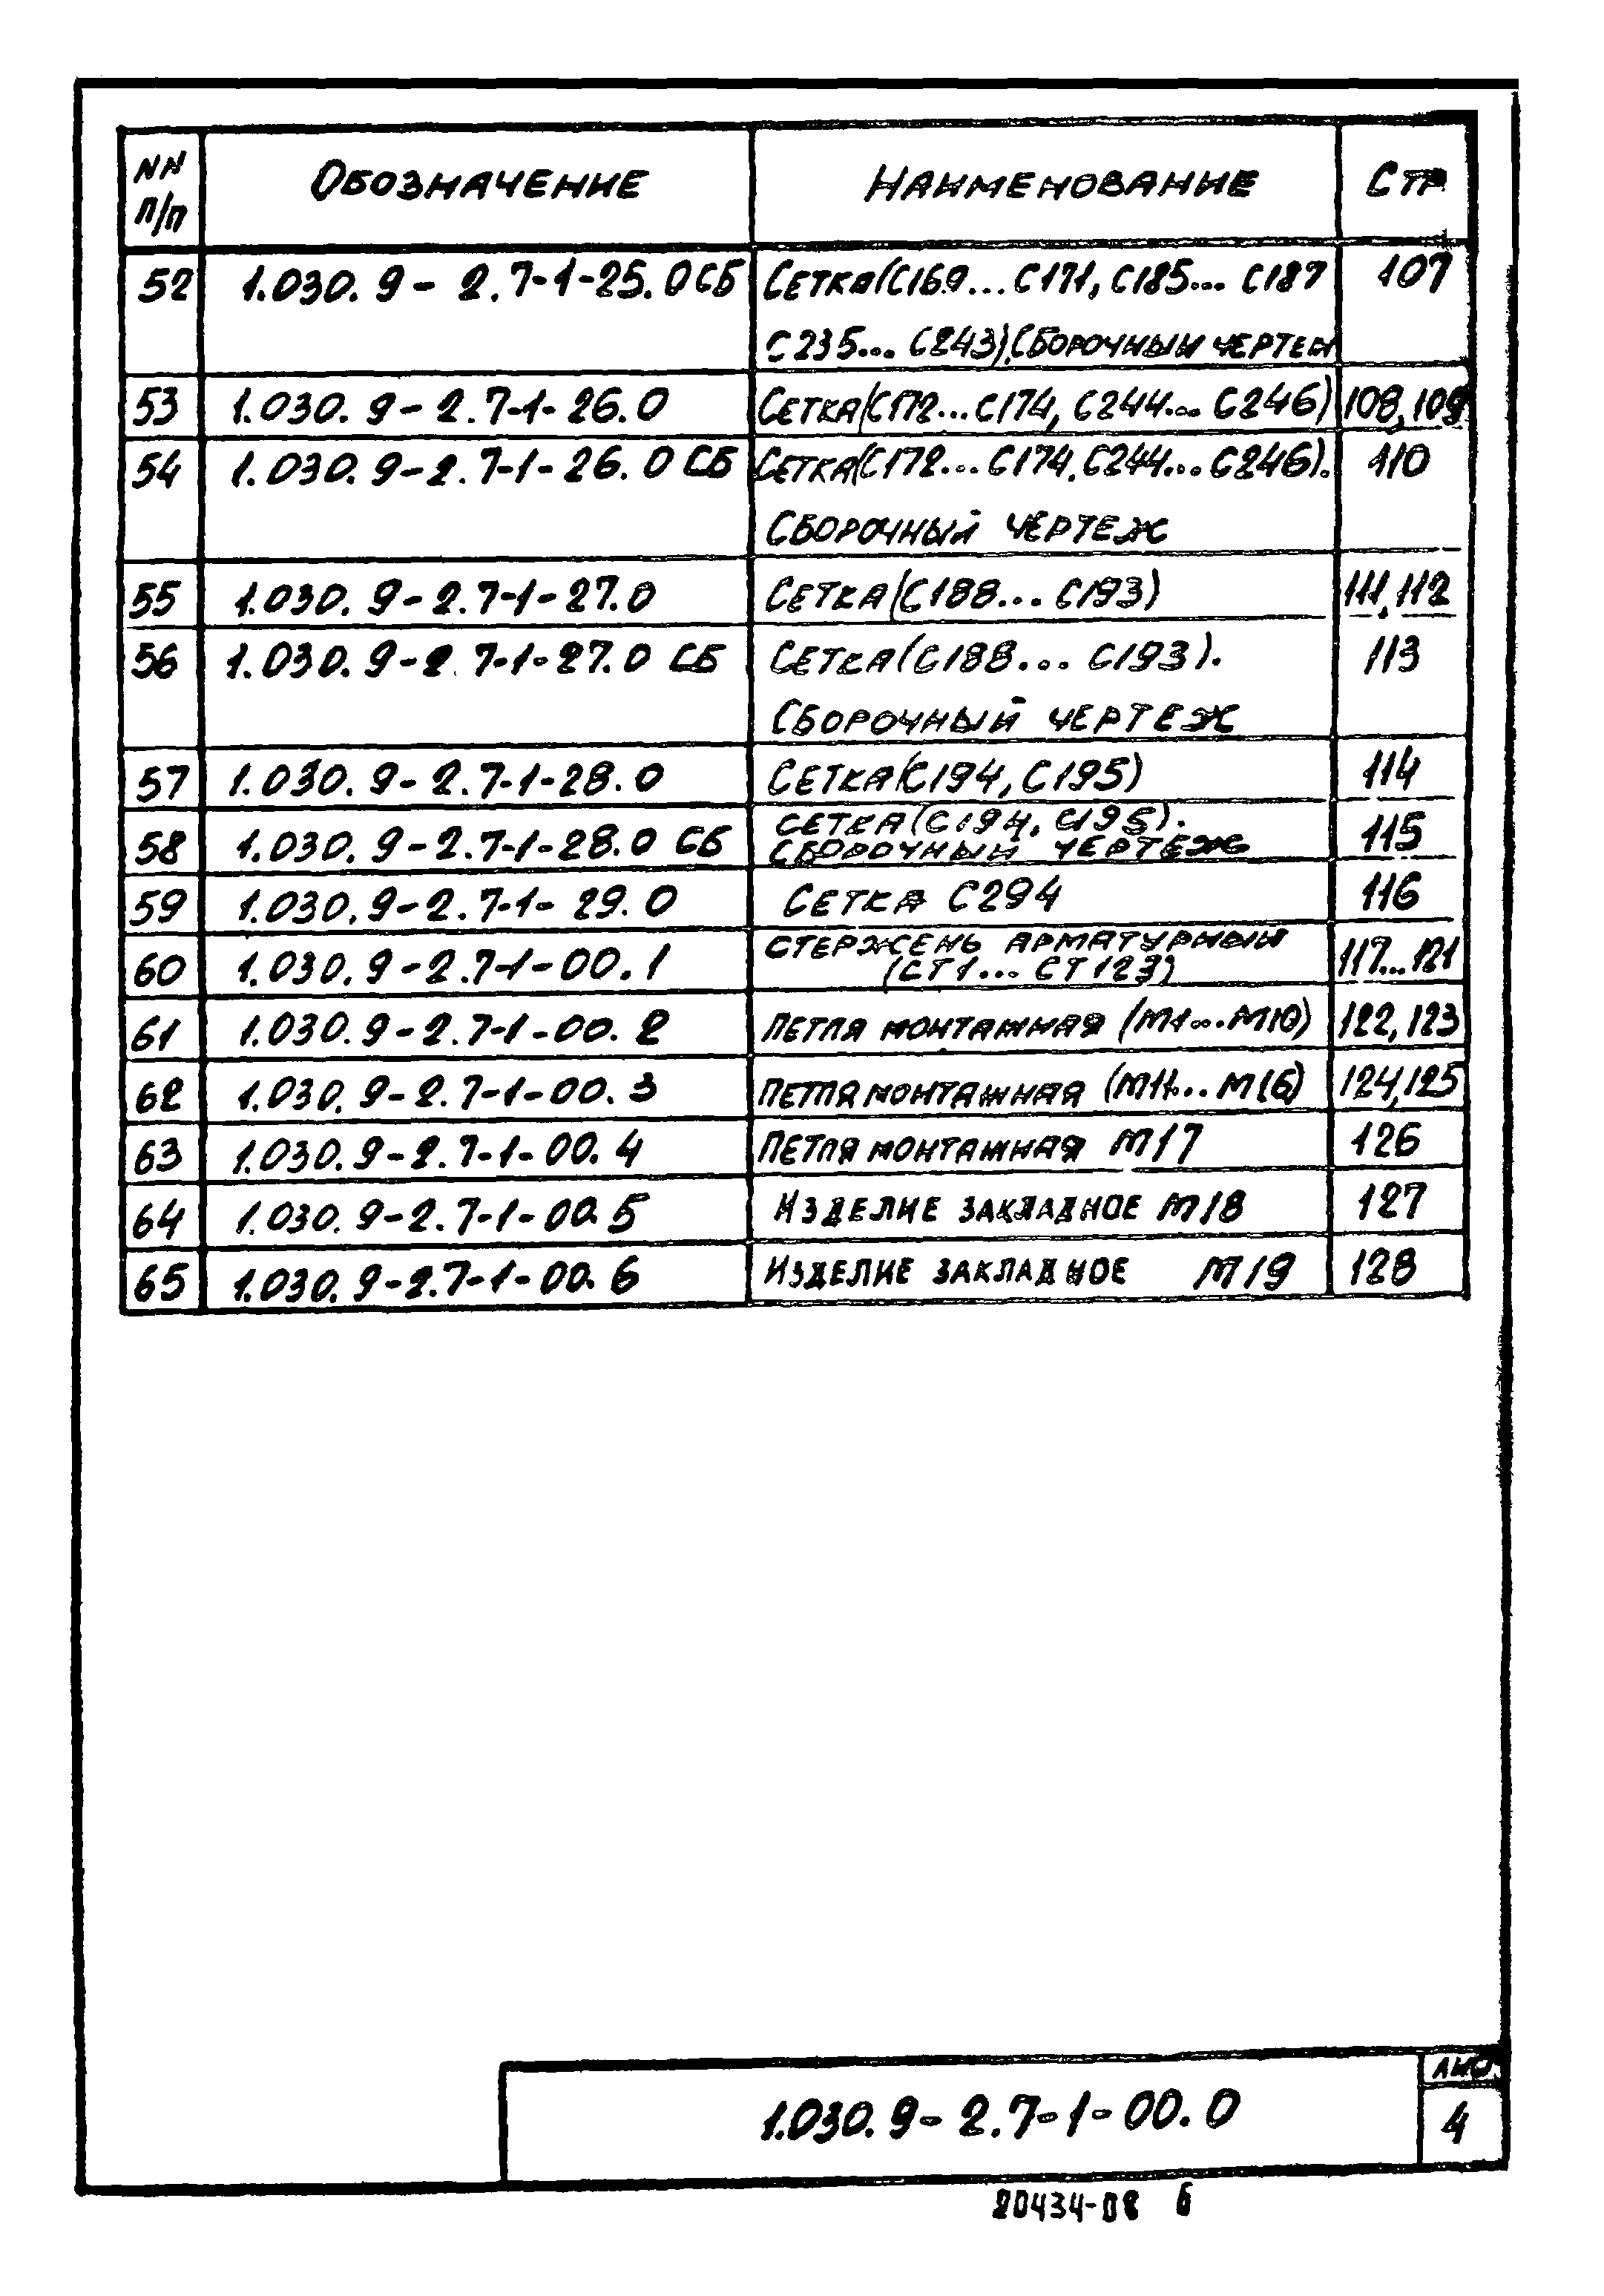 NN п/п Обозначение Наименование Стр
52 1.030.9-2.7-1-25.0 СБ Сетка(С169...С171, С185...С187 107
С235...С243).Сборочный чертеж
53 1.030.9-2.7-1-26.0 Сетка(С172...С174, С244...С246) 108,109
54 1.030.9-2.7-1-26.0 СБ Сетка(С172...С174.С244...С246). 110
Сборочный чертеж
55 1.030.9-2.7-1-27.0 Сетка(С188...С193) 111,112
56 1.030.9-2.7-1-27.0 СБ Сетка(С188...С193). 113
Сборочный чертеж
57 1.030.9-2.7-1-28.0 Сетка(С194, С195) 114
58 1.030.9-2.7-1-28.0 СБ Сетка(С194, С195). 115
Сборочный чертеж
59 1.030.9-2.7-1-29.0 Сетка С294 116
60 1.030.9-2.7-1-00.1 Стержень арматурный 117...121
(СТ1...СТ123)
61 1.030.9-2.7-1-00.2 Петля монтажная (М1...М10) 122,123
62 1.030.9-2.7-1-00.3 Петля монтажная (М11...М16) 124,125
63 1.030.9-2.7-1-00.4 Петля монтажная М17 126
64 1.030.9-2.7-1-00.5 Изделие закладное М18 127
65 1.030.9-2.7-1-00.6 Изделие закладное М19 128
1.030.9-2.7-1-00.0
Лист
4
20434-08 6